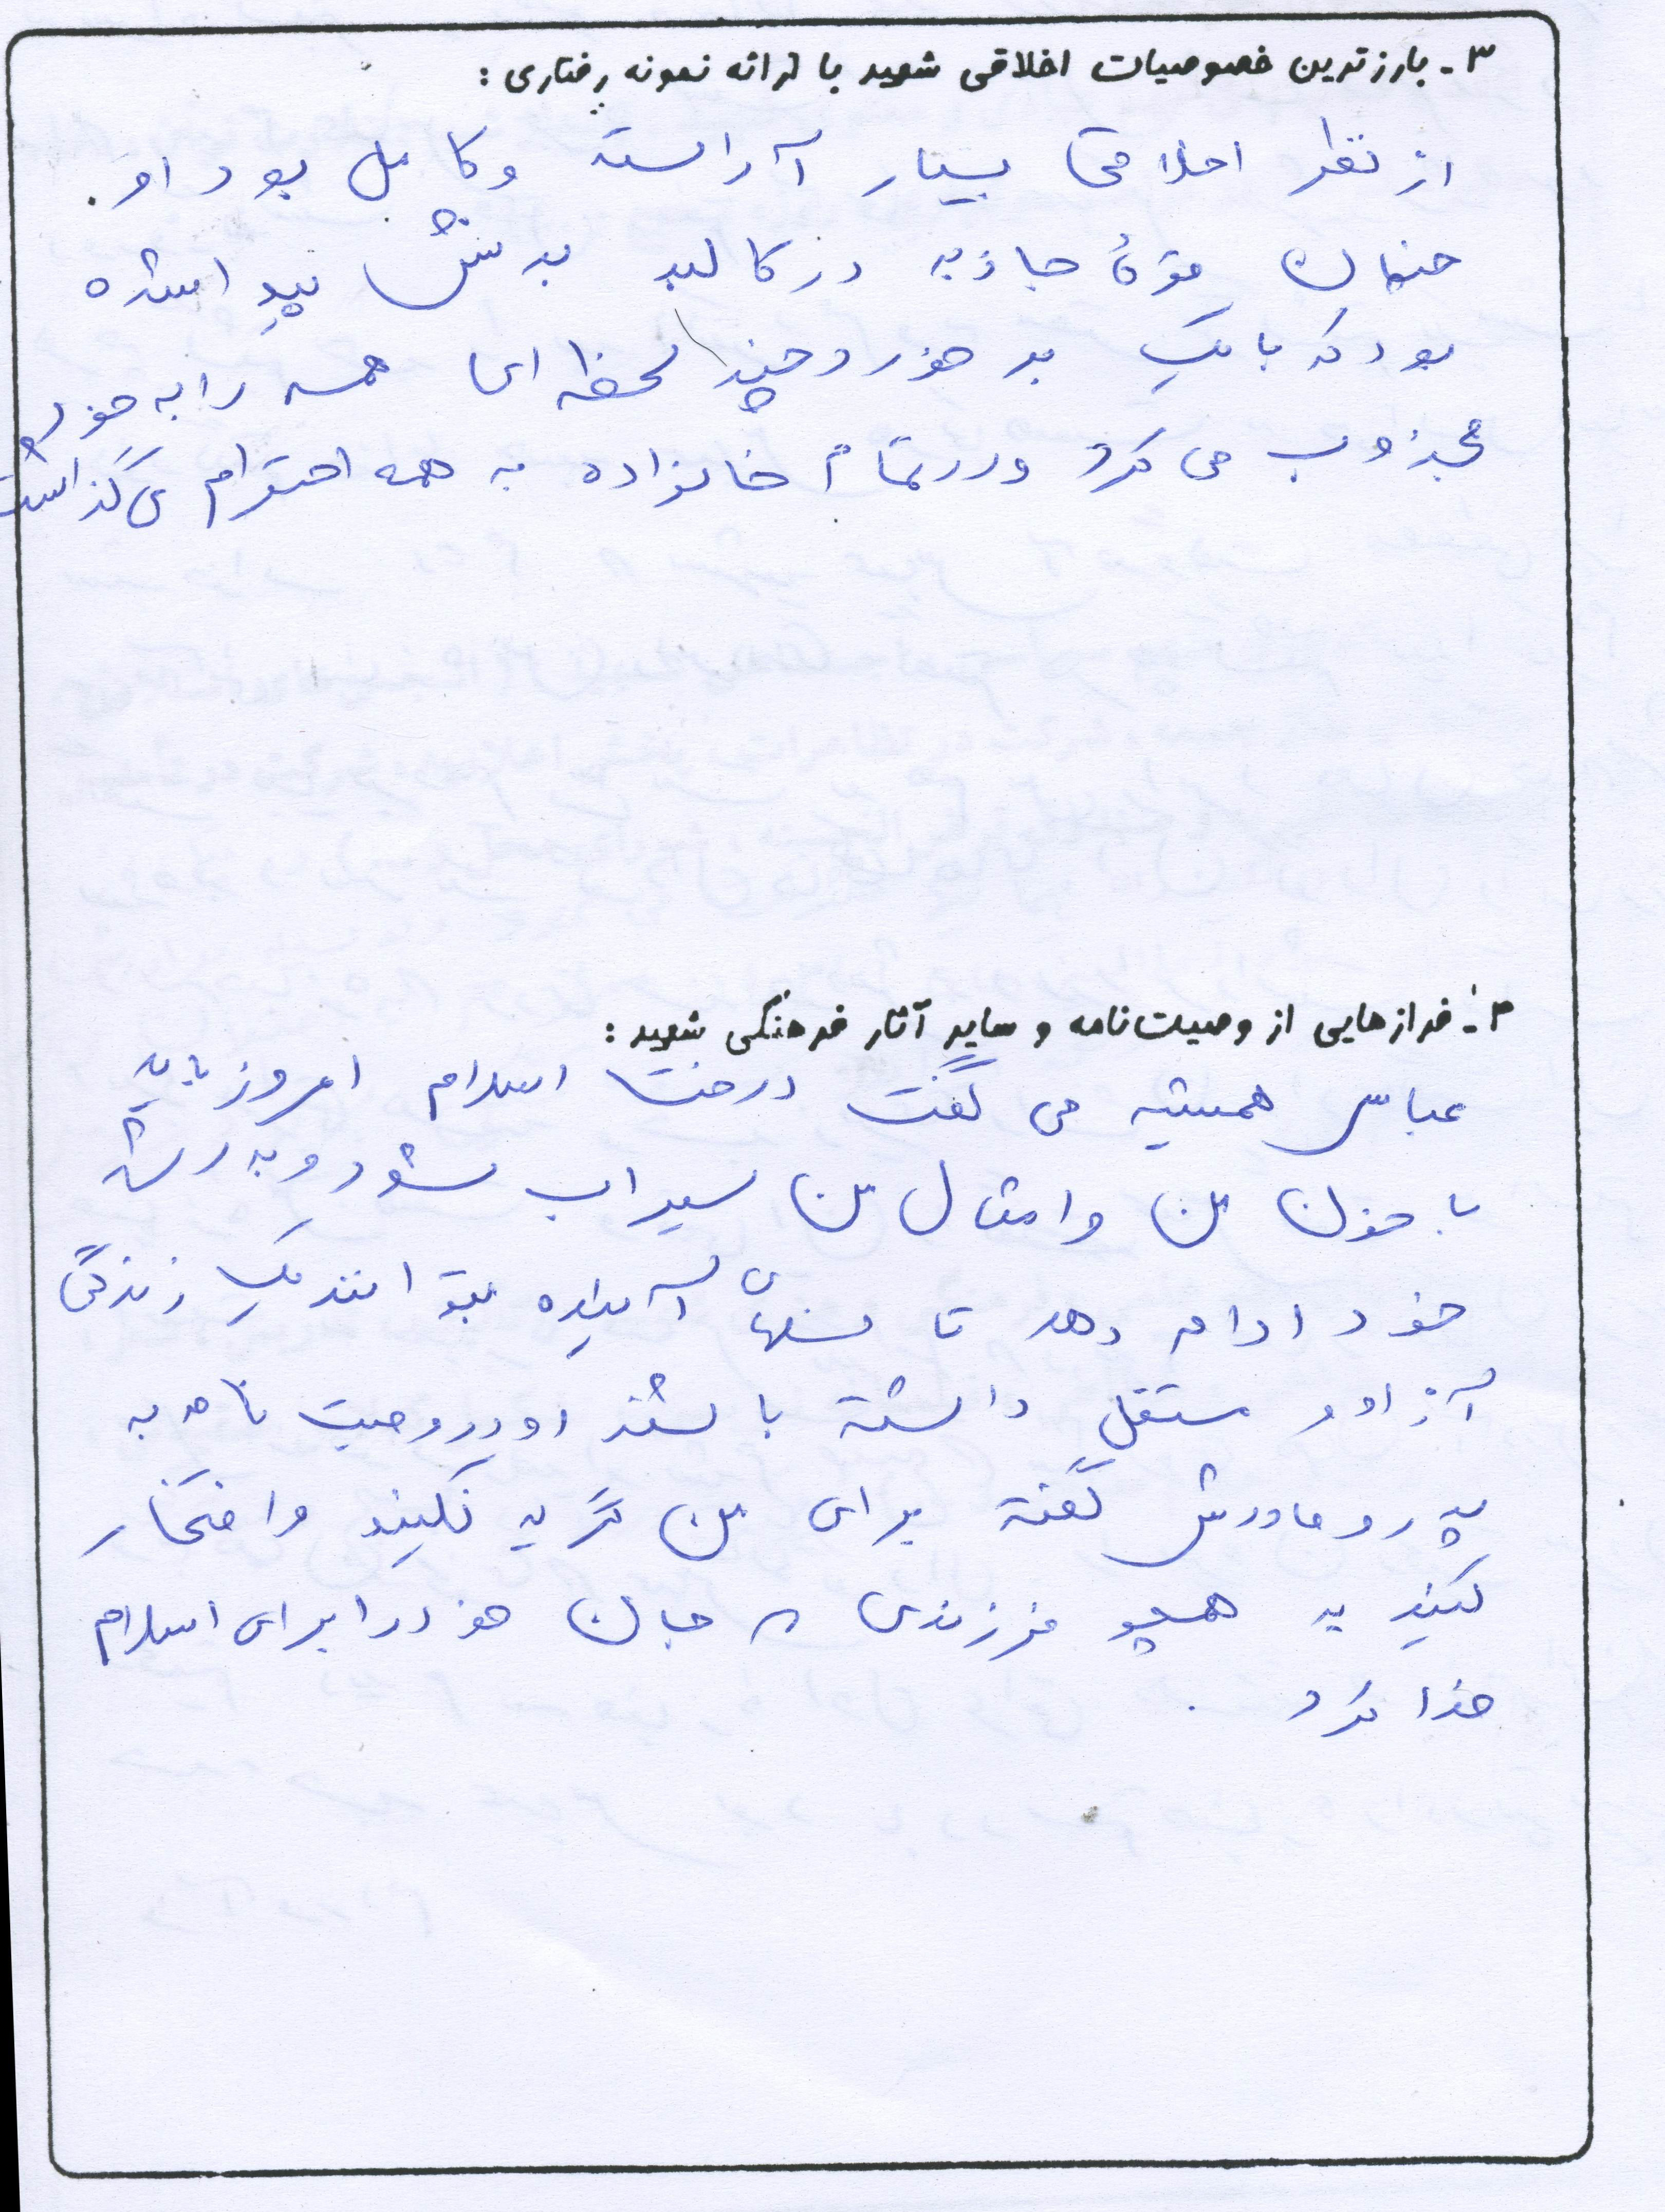 ۳- بارزترین خصوصیات اخلاقی شهید با ارائه نمونه رفتاری:
از نظر اخلاقی بسیار آراسته و کامل بود او.
چنان قوهٔ جاذبه در کالبد بدنش پیدا شده
بود که با یک بر خورد چند لحظه ای همه را به خود
مجذوب می کرد و در تمام خانواده به همه احترام می گذاشت
۴- فرازهایی از وصیت‌نامه و سایر آثار فرهنگی شهید:
عباس همیشه می گفت درخت اسلام امروز باید
با خون من و امثال من سیراب شود و به رشد
خود ادامه دهد تا نسلهای آینده بتوانند یک زندگی
آزاد و مستقل داشته باشند او در وصیت نامه به
پدر و مادرش گفته برای من گریه نکنید و افتخار
کنید به همچو فرزندی که جان خود را برای اسلام
فدا کرد.